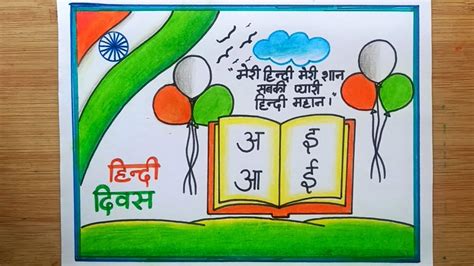 "मेरी हिन्दी मेरी शान
सबकी प्यारी
हिन्दी महान।"
अ इ
आ ई
हिन्दी
दिवस